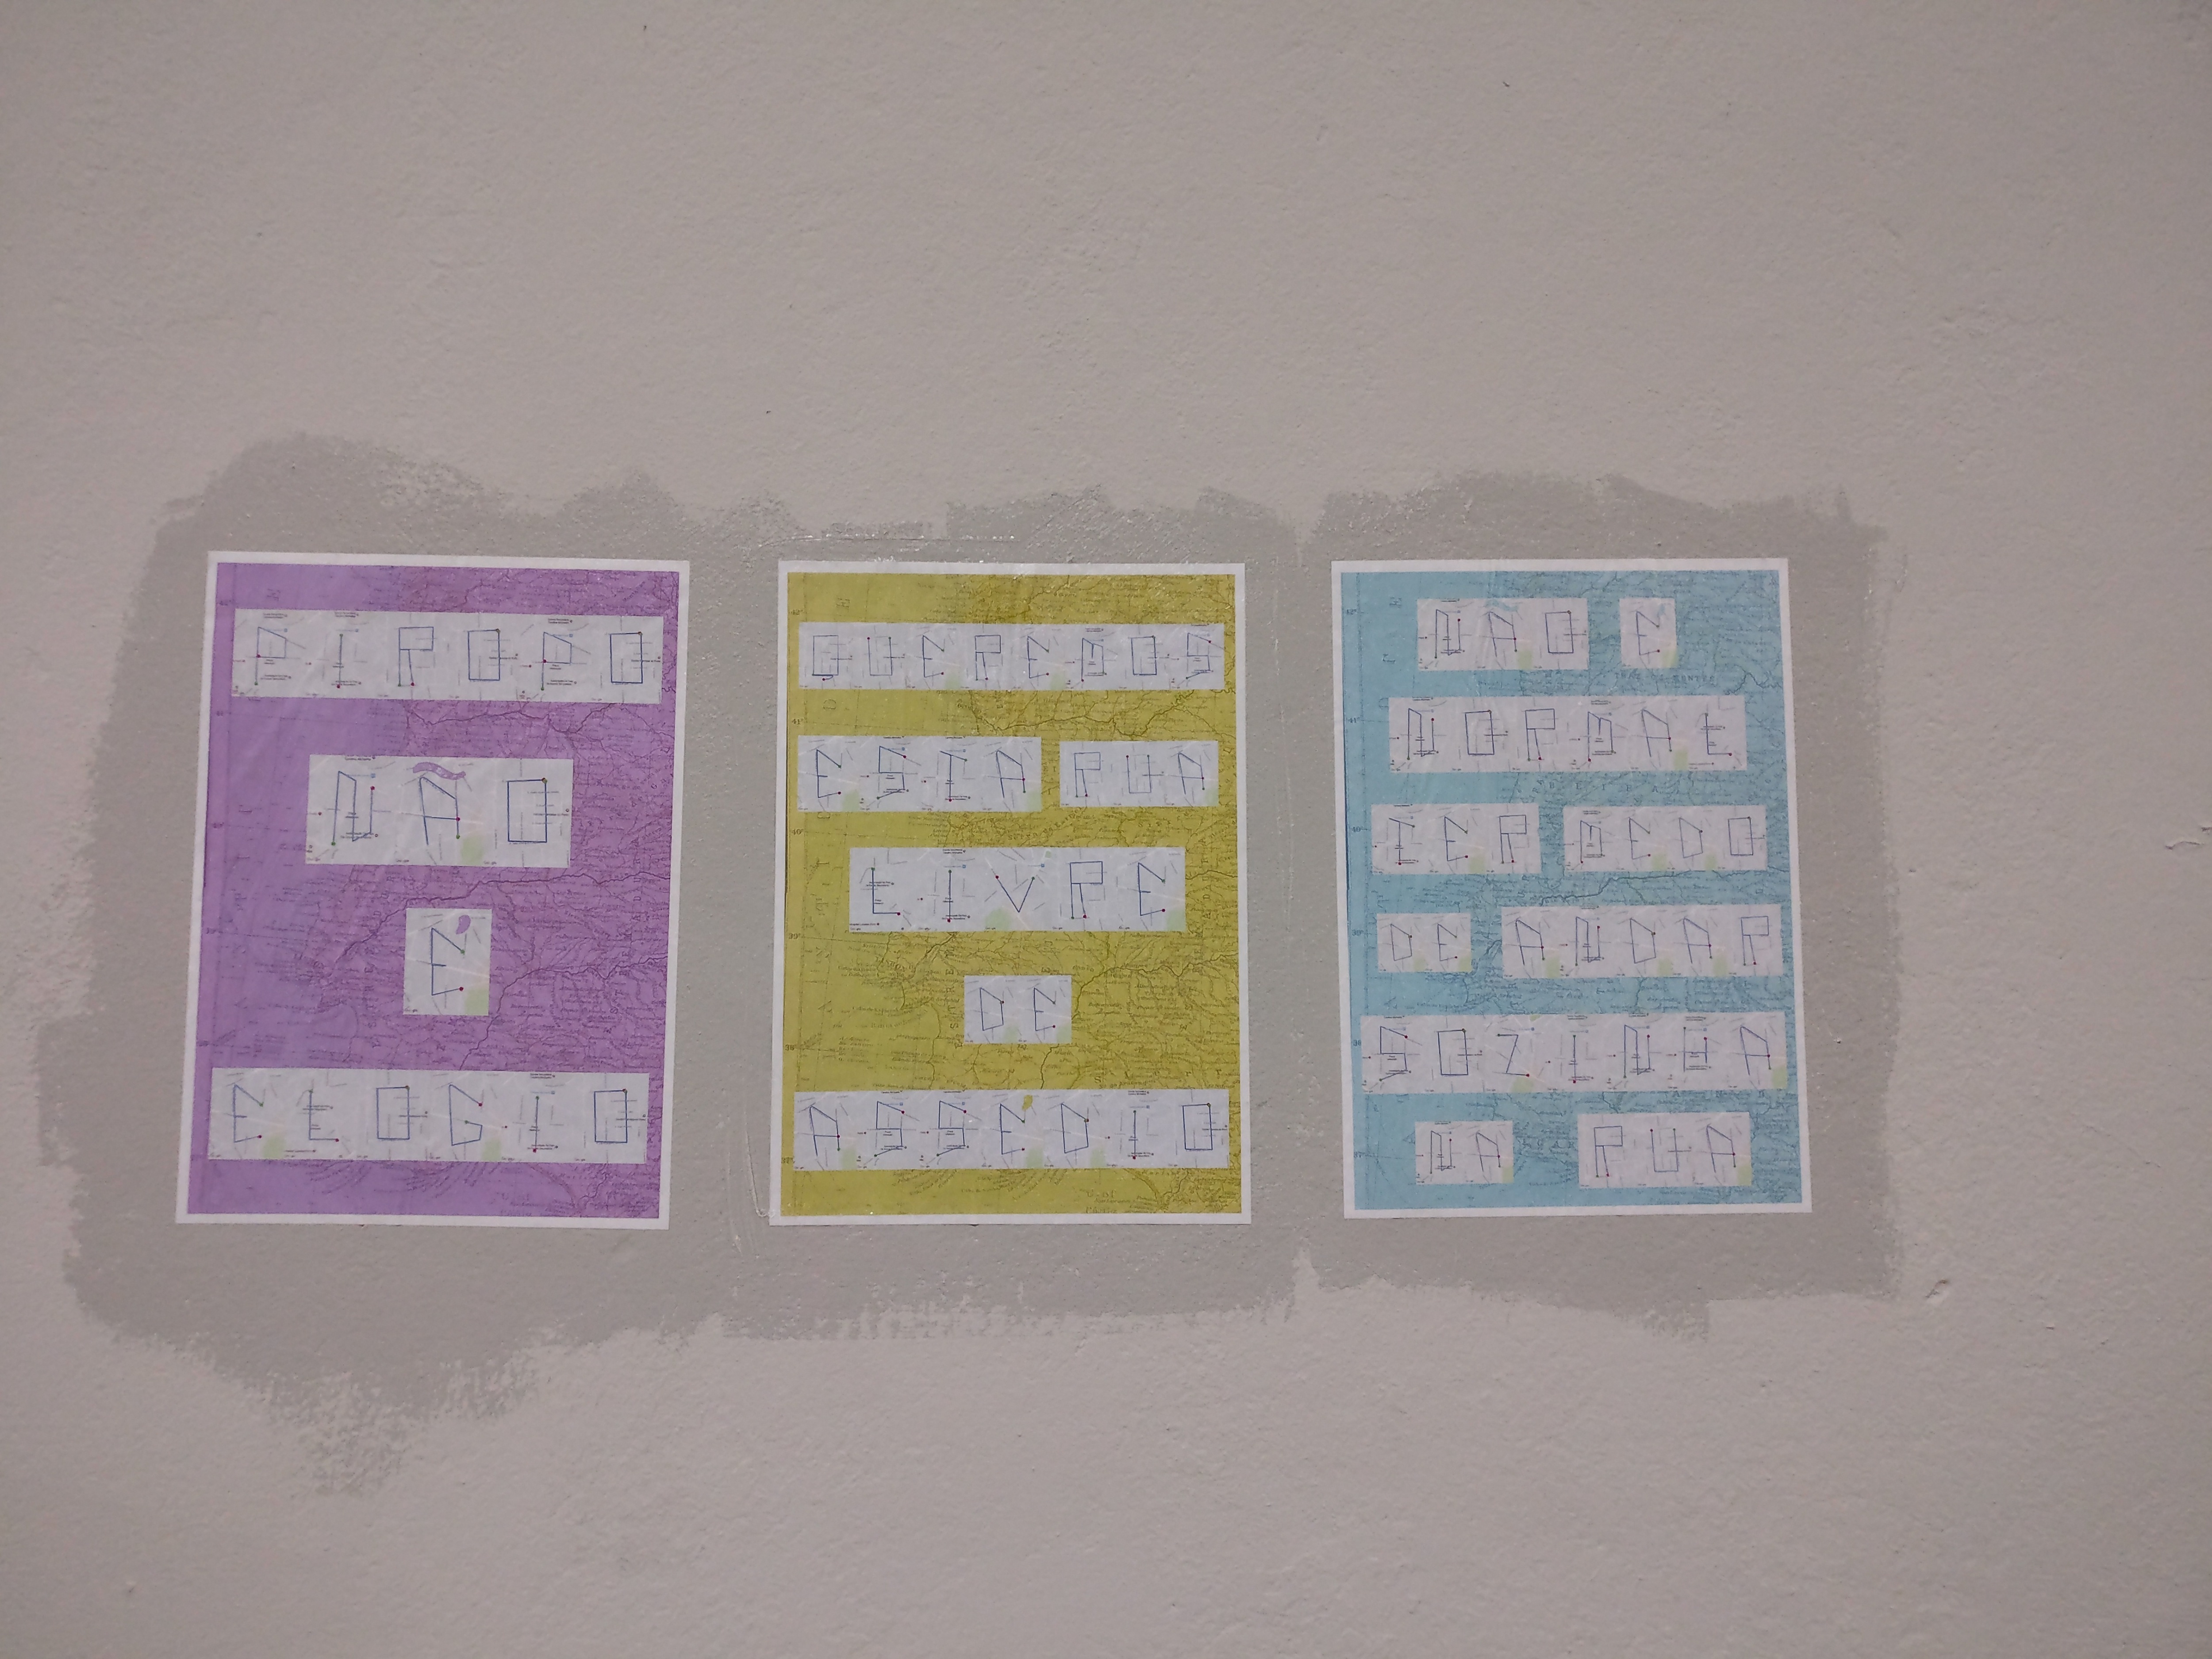 PIROPO
NÃO
É
ELOGIO
QUEREMOS
ESTA RUA
LIVRE
DE
ASSÉDIO
NÃO É
NORMAL
TER MEDO
DE ANDAR
SOZINHA
NA RUA